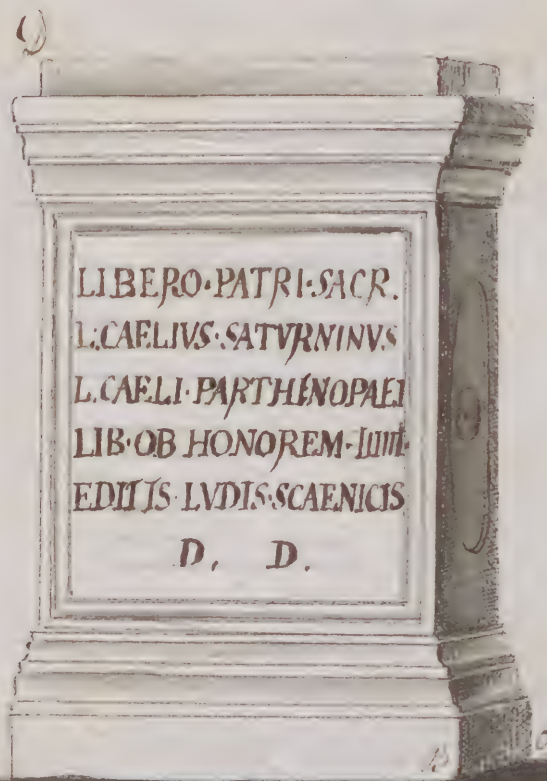 LIBERO·PATRI·SACR.
L.CAELIVS·SATVRNINVS
L.CAELI·PARTHENOPAEI
LIB·OB HONOREM·IIIIII·
EDITIS·LVDIS·SCAENICIS
D. D.